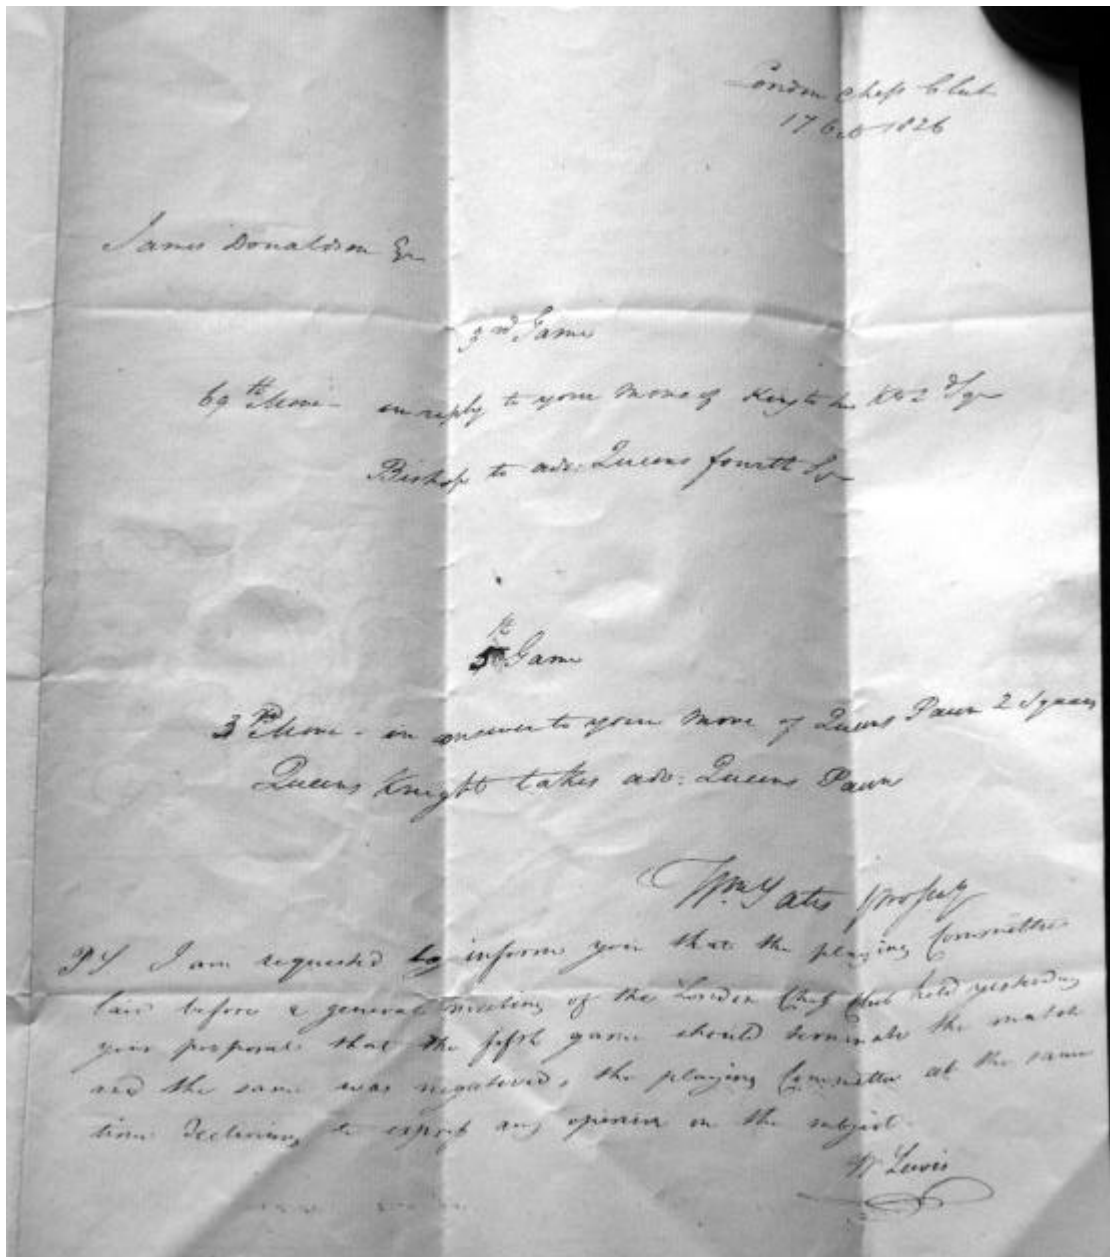 London Chess Club
17 Oct 1826
James Donaldson Esr
3rd Game
69th Move - in reply to your move of King to his Kts 2d Sqr
Bishop to adv: Queens fourth Sqr
5th Game
3rd Move - in answer to your move of Queens Pawn 2 Squares
Queens Knight takes adv: Queens Pawn
Wm Yates pro Secy
PS I am requested to inform you that the playing Committee
laid before a general meeting of the London Chess Club held yesterday
your proposal that the fifth game should terminate the match
and the same was negatived, the playing Committee at the same
time declining to express any opinion on the subject.
W Lewis